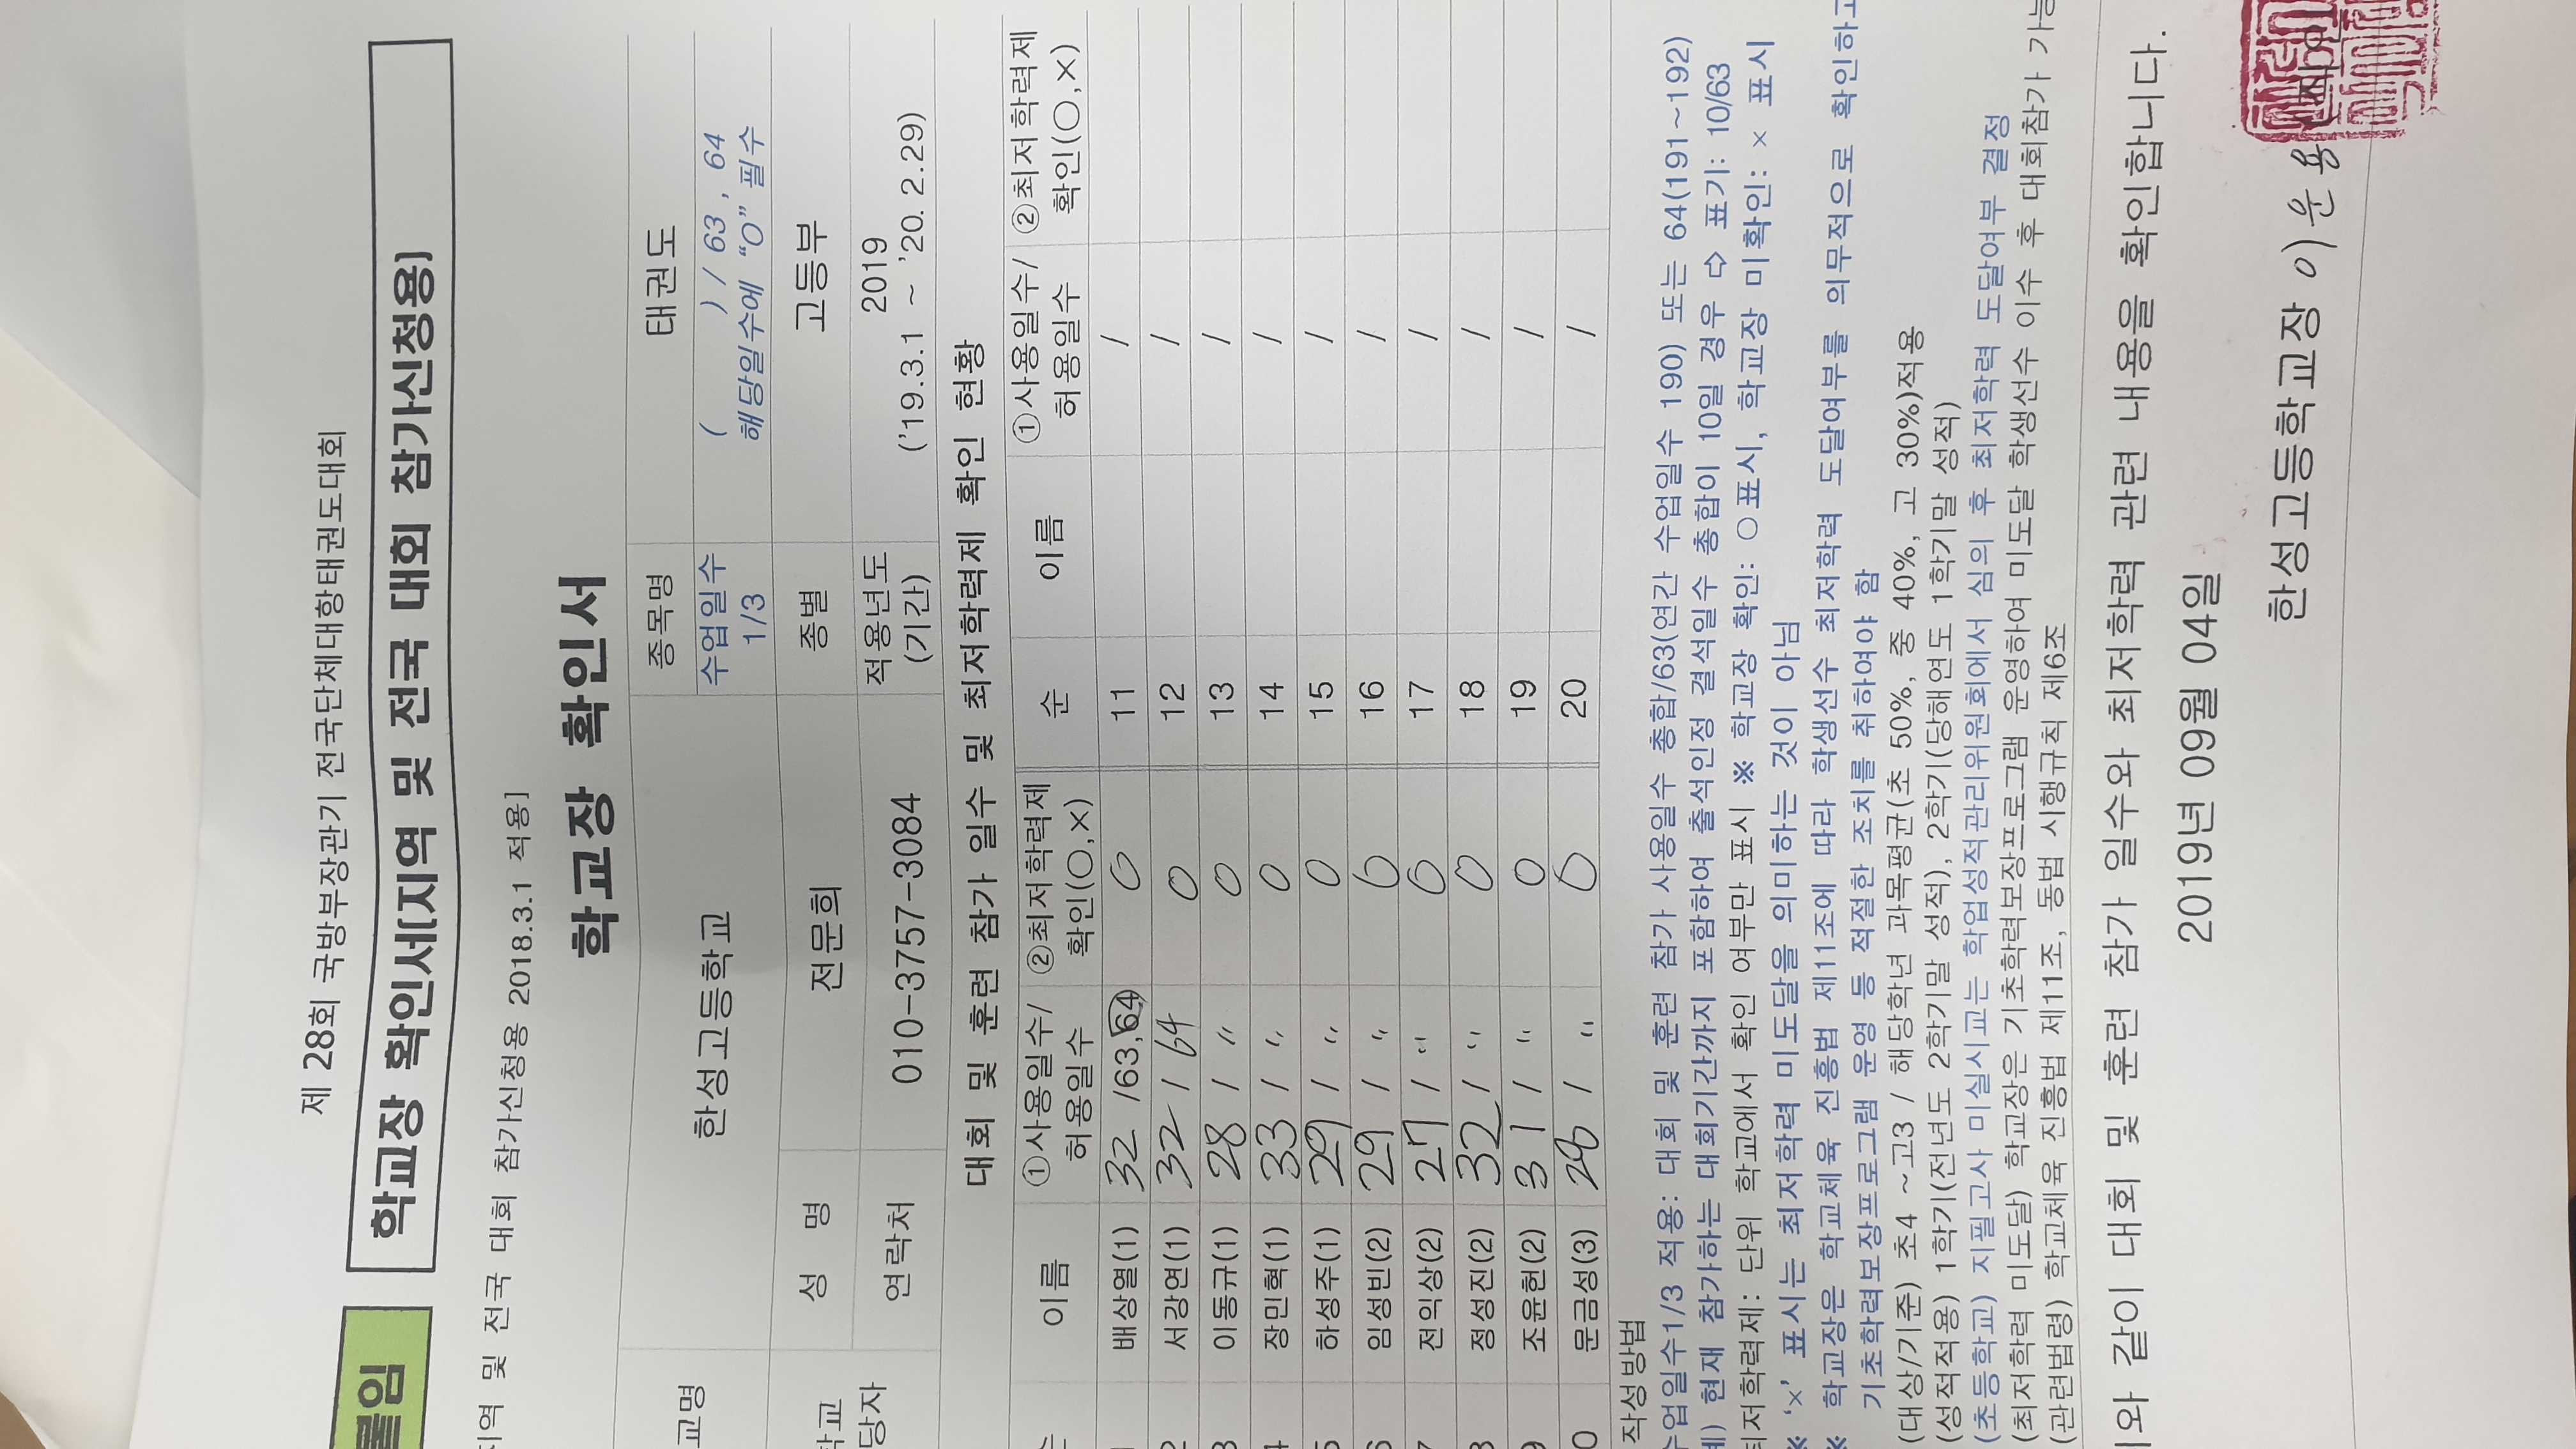 제 28회 국방부장관기 전국단체대항태권도대회
붙임 학교장 확인서(지역 및 전국 대회 참가신청용)
지역 및 전국 대회 참가신청용 2018.3.1 적용]
학교장 확인서
교명 한성고등학교 종목명 태권도
수업일수 1/3 ( ) / 63 , 64
해당일수에 “O” 필수
학교 담당자 성 명 전문희 종별 고등부
연락처 010-3757-3084 적용년도 (기간) 2019
('19.3.1 ~ '20. 2.29)
대회 및 훈련 참가 일수 및 최저학력제 확인 현황
이름 ①사용일수/허용일수 ②최저학력제 확인(○,×) 순 이름 ①사용일수/허용일수 ②최저학력제 확인(○,×)
배상열(1) 32 /63,64 O 11 /
2 서강연(1) 32 / 64 O 12 /
3 이동규(1) 28 / 〃 O 13 /
4 장민혁(1) 33 / 〃 O 14 /
5 하성주(1) 29 / 〃 O 15 /
6 임성빈(2) 29 / 〃 O 16 /
7 전익상(2) 27 / 〃 O 17 /
8 정성진(2) 32 / 〃 O 18 /
9 조윤헌(2) 31 / 〃 O 19 /
0 문금성(3) 28 / 〃 O 20 /
작성방법
수업일수1/3 적용: 대회 및 훈련 참가 사용일수 총합/63(연간 수업일수 190) 또는 64(191~192)
예) 현재 참가하는 대회기간까지 포함하여 출석인정 결석일수 총합이 10일 경우 ⇨ 표기: 10/63
최저학력제: 단위 학교에서 확인 여부만 표시 ※ 학교장 확인: ○표시, 학교장 미확인: × 표시
※ ‘×’ 표시는 최저학력 미도달을 의미하는 것이 아님
※ 학교장은 학교체육 진흥법 제11조에 따라 학생선수 최저학력 도달여부를 의무적으로 확인하고
기초학력보장프로그램 운영 등 적절한 조치를 취하여야 함
(대상/기준) 초4 ~고3 / 해당학년 과목평균(초 50%, 중 40%, 고 30%)적용
(성적적용) 1학기(전년도 2학기말 성적), 2학기(당해연도 1학기말 성적)
(초등학교) 지필고사 미실시교는 학업성적관리위원회에서 심의 후 최저학력 도달여부 결정
(최저학력 미도달) 학교장은 기초학력보장프로그램 운영하여 미도달 학생선수 이수 후 대회참가 가능
(관련법령) 학교체육 진흥법 제11조, 동법 시행규칙 제6조
위와 같이 대회 및 훈련 참가 일수와 최저학력 관련 내용을 확인합니다.
2019년 09월 04일
한성고등학교장 이운용